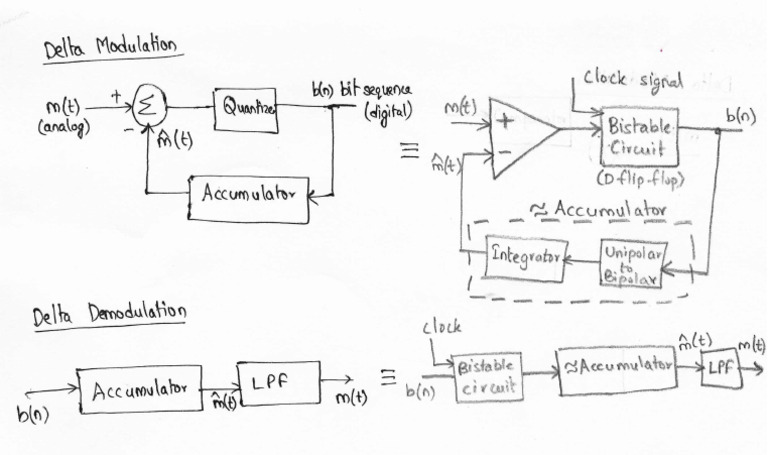 Delta Modulation
m(t)
(analog)
+
-
Σ
m̂(t)
Quantize
b(n) bit sequence
(digital)
Accumulator
≡
Clock signal
m(t)
m̂(t)
+
-
Bistable
Circuit
(D flip-flop)
b(n)
≈ Accumulator
Integrator
Unipolar
to
Bipolar
Delta Demodulation
b(n)
Accumulator
m̂(t)
LPF
m(t)
≡
Clock
b(n)
Bistable
circuit
≈Accumulator
m̂(t)
LPF
m(t)